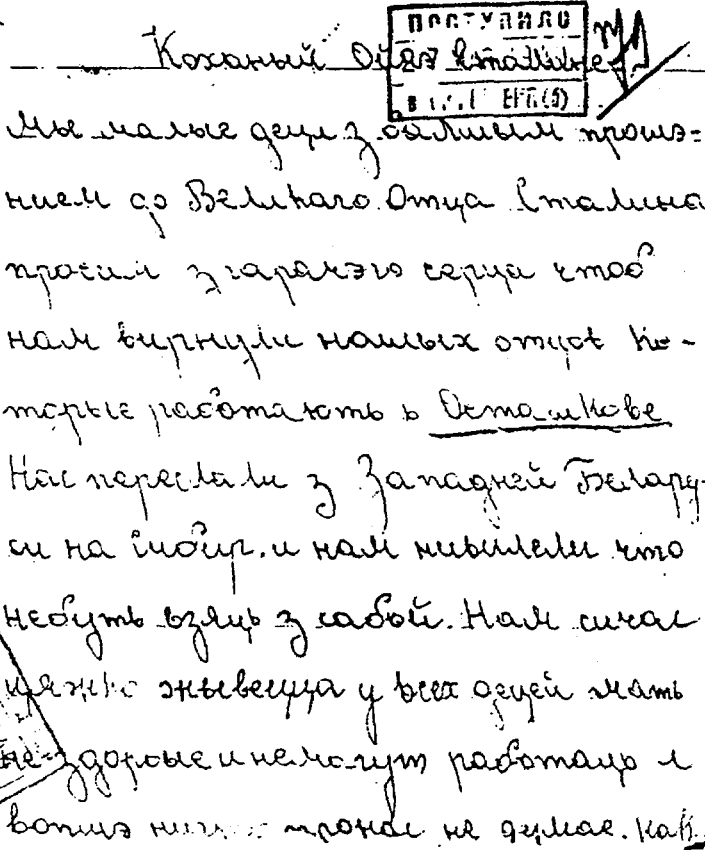 ПОСТУПИЛО
Коханый Ойтэ Сталине
ВКП(б)
Мы малые дeци з бальшым прошэ=
нием до Великаго Отца Сталина
просим з гарачэго серца чтоб
нам вирнули нашых отцов Ко-
торые работають в Осташкове
Нас переслали з Западней Белару-
си на Сибир. и нам нивилели что
небуть взяць з сабой. Нам сичас
цяжко жывецца у всех децей мать
не-здоровые и немогут работаць и
вопшэ про нас не думае. Как